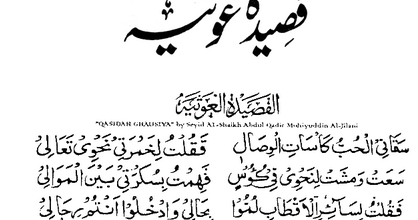 قصيدة غوثيه
القصيدة الغوثية
"QASIDAH GHAUSIYA" by Seyid Al-Shaikh Abdul Qadir Mohiyuddin Al-Jilani
سَقَانِي الْحُبُّ كَاسَاتِ الْوِصَالِ فَقُلْتُ لِخَمْرَتِي نَحْوِي تَعَالِي
سَعَتْ وَمَشَتْ لِنَحْوِي فِي كُؤُسٍ فَهِمْتُ بِسُكْرَتِي بَيْنَ الْمَوَالِي
فَقُلْتُ لِسَآئِرِ الْاَقْطَابِ لُمُّوا بِحَالِي وَادْخُلُوْا اَنْتُمْ رِجَالِي